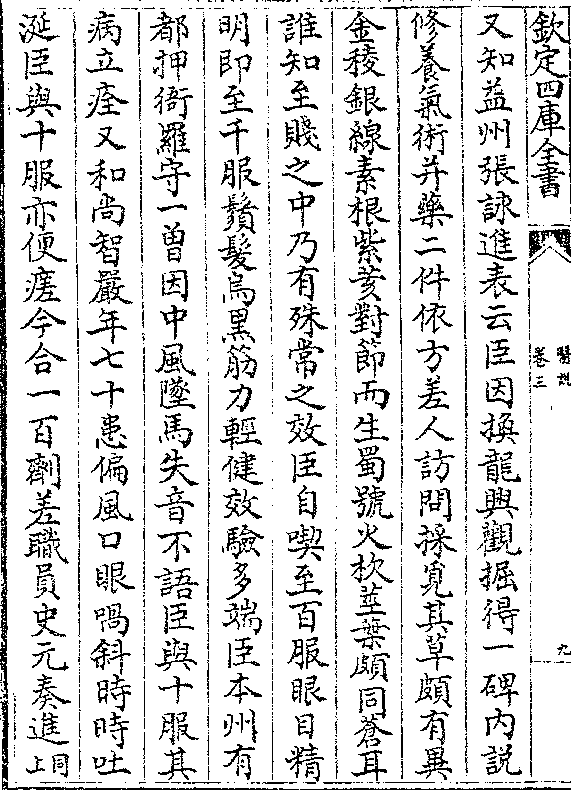 欽定四庫全書
醫說
卷三
九
又知益州張詠進表云臣因換龍興觀掘得一碑内說
修養氣術并藥二件依方差人訪問採覓其草頗有異
金稜銀線素根紫荄對節而生蜀號火杴莖葉頗同蒼耳
誰知至賤之中乃有殊常之效臣自喫至百服眼目精
明即至千服鬚髮烏黑筋力輕健效驗多端臣本州有
都押衙羅守一曽因中風墜馬失音不語臣與十服其
病立痊又和尚智嚴年七十患偏風口眼喎斜時時吐
涎臣與十服亦便瘥今合一百劑差職員史元奏進同上